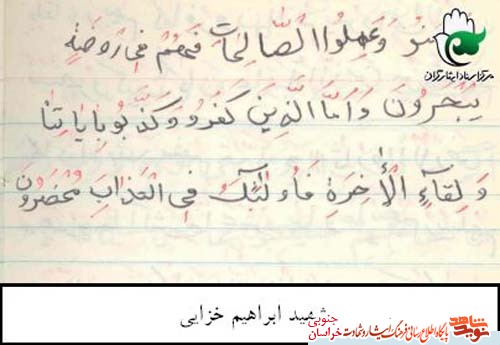 نو وَعَمِلُوا الصَّالِحَاتِ فَهُمْ فِی رَوضَةٍ
یُحبَرُونَ وَ اَمَّا الَّذِینَ کَفَرُو وَ کَذَّبُو بِایَاتِنَا
وَ لِقَآءِ الْأَخِرَةِ فَاُولئِکَ فِی الْعَذَابِ مُحْضَرُونَ
مرکز اسناد ایثارگران
شهید ابراهیم خزایی
نوید شاهد
پایگاه اطلاع رسانی فرهنگ ایثار و شهادت
خراسان جنوبی